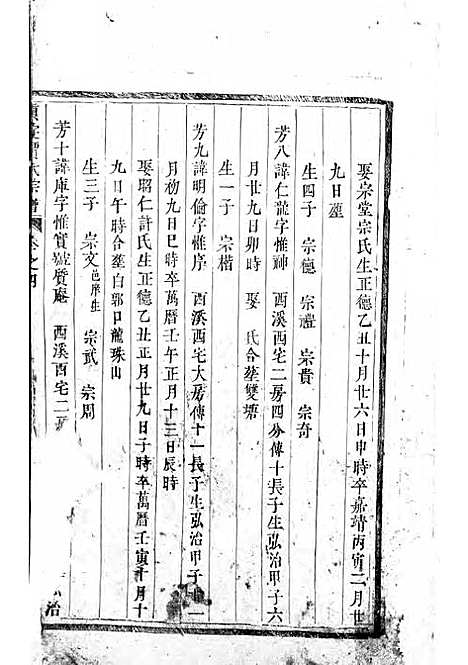 娶宗堂宗氏生正德乙丑十月廿六日申時卒嘉靖丙寅二月廿
九日塟
生四子　宗德　宗禮　宗貴　宗奇
芳八諱仁龍字惟神　酉溪西宅二房四分傳十長子生弘治甲子六
月廿九日卯時　娶　氏合塟雙塘
生一子　宗楷
芳九諱明倫字惟序　酉溪西宅大房傳十一長子生弘治甲子十二
月初九日巳時卒萬曆壬午正月十三日辰時
娶昭仁許氏生正德乙丑正月廿九日子時卒萬曆壬寅十月十
九日午時合塟白郭口龍珠山
生三子　宗文邑庠生　宗武　宗周
芳十諱庫字惟實號質菴　酉溪酉宅二房
治